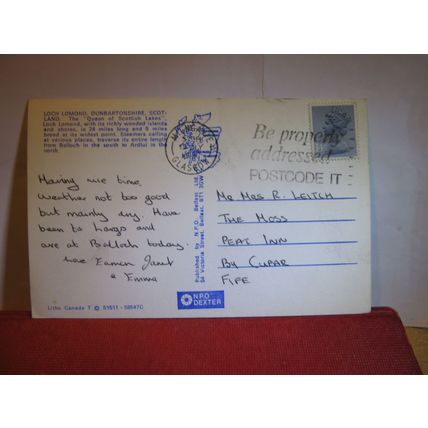 LOCH LOMOND, DUNBARTONSHIRE, SCOT-
LAND. The "Queen of Scottish Lakes",
Loch Lomond, with its richly wooded islands
and shores, is 24 miles long and 5 miles
broad at its widest point. Steamers calling
at various places, traverse its entire length
from Balloch in the south to Ardlui in the
north.
Having nice time
Weather not too good
but mainly dry. Have
been to Largs and
are at Balloch today.
love Eamon Janet
& Emma
Litho Canada T © 51511 - 58547C
Published by N.P.O. Belfast Ltd.
54 Victoria Street, Belfast, BT1 3GW
NPO
DEXTER
GLASGOW
Be properly
addressed
POSTCODE IT
Mr Mrs R. Leitch
The Moss
Peat Inn
By Cupar
Fife